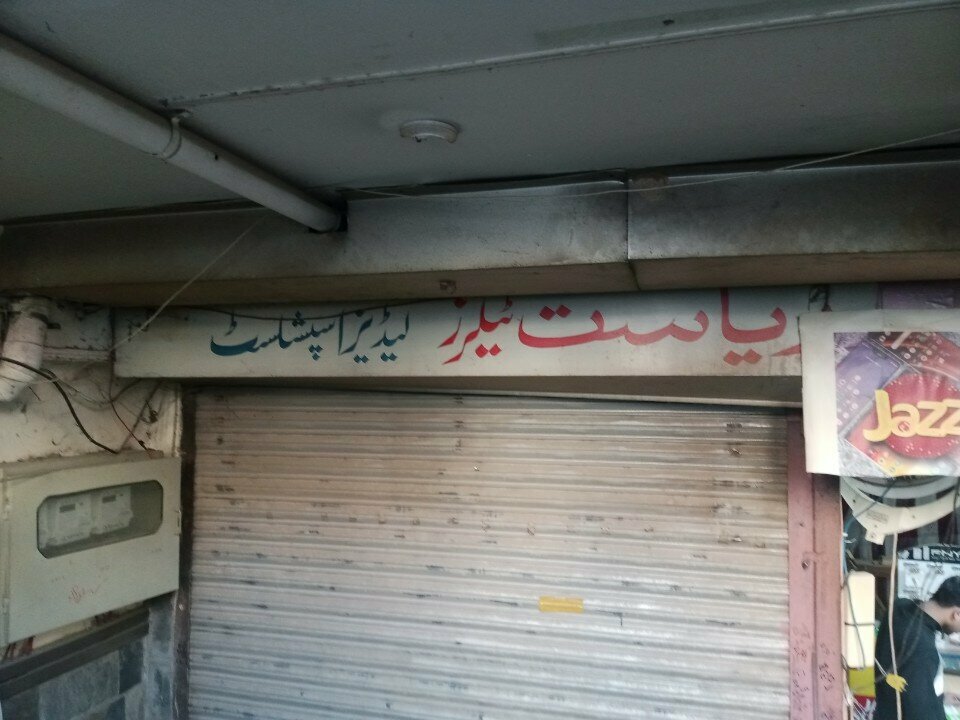 ریاست ٹیلرز لیڈیز اسپشلسٹ
Jazz
PNY